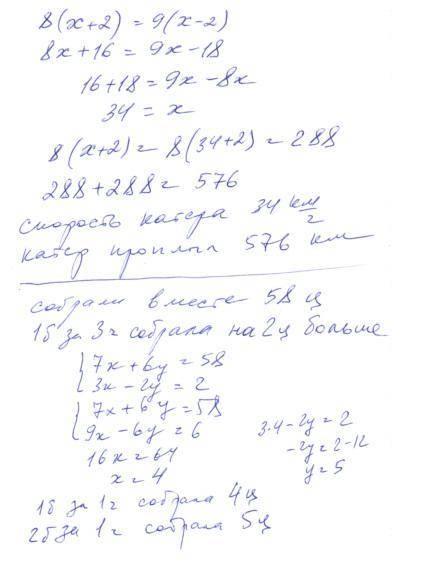 8(x+2) = 9(x-2)
8x+16 = 9x-18
16+18 = 9x-8x
34 = x
8(x+2) = 8(34+2) = 288
288+288 = 576
скорость катера 34 км/г
катер проплыл 576 км
собрали вместе 58 ц
1б за 3ч собрала на 2ц больше
{7x+6y = 58
3x-2y = 2
{7x+6y = 58
9x-6y = 6
16x = 64
x = 4
3·4-2y = 2
-2y = 2-12
y = 5
1б за 1ч собрала 4ц
2б за 1ч собрала 5ц